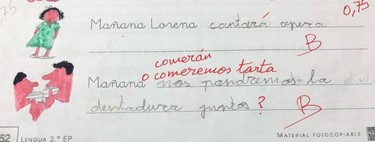 75
Mañana Lorena cantará opera
0,75
B
comerán
o comeremos tarta
Mañana nos pondremos la
dentadura juntos ?
B
52 LENGUA 2.º EP
MATERIAL FOTOCOPIABLE